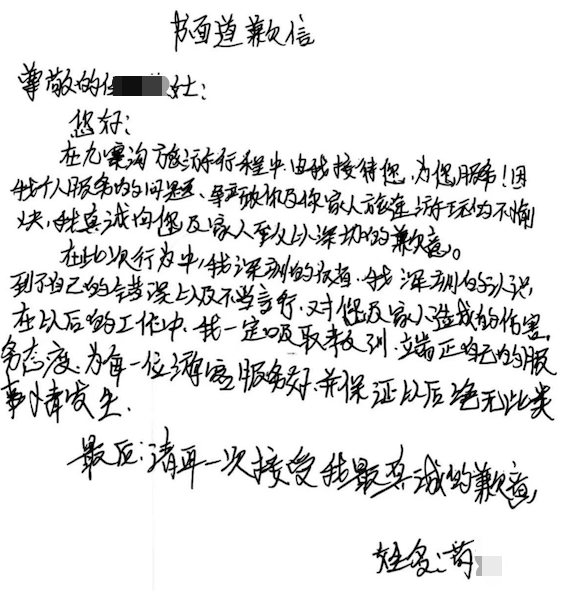 书面道歉信
尊敬的任 女士:
您好:
在九寨沟旅游行程中由我接待您,为您服务!因
我个人服务的问题,导致你及你家人旅途游玩的不愉
快,我真诚向您及家人至以深切的歉意。
在此次行为中,我深刻的 我深刻的认识
到了自己的错误以及不当言行,对您及家人造成的伤害.
在以后的工作中,我一定吸取教训,立端正自己的服
务态度,为每一位游客服务好,并保证以后绝无此类
事情发生.
最后:请再一次接受我最真诚的歉意,
姓名:苟